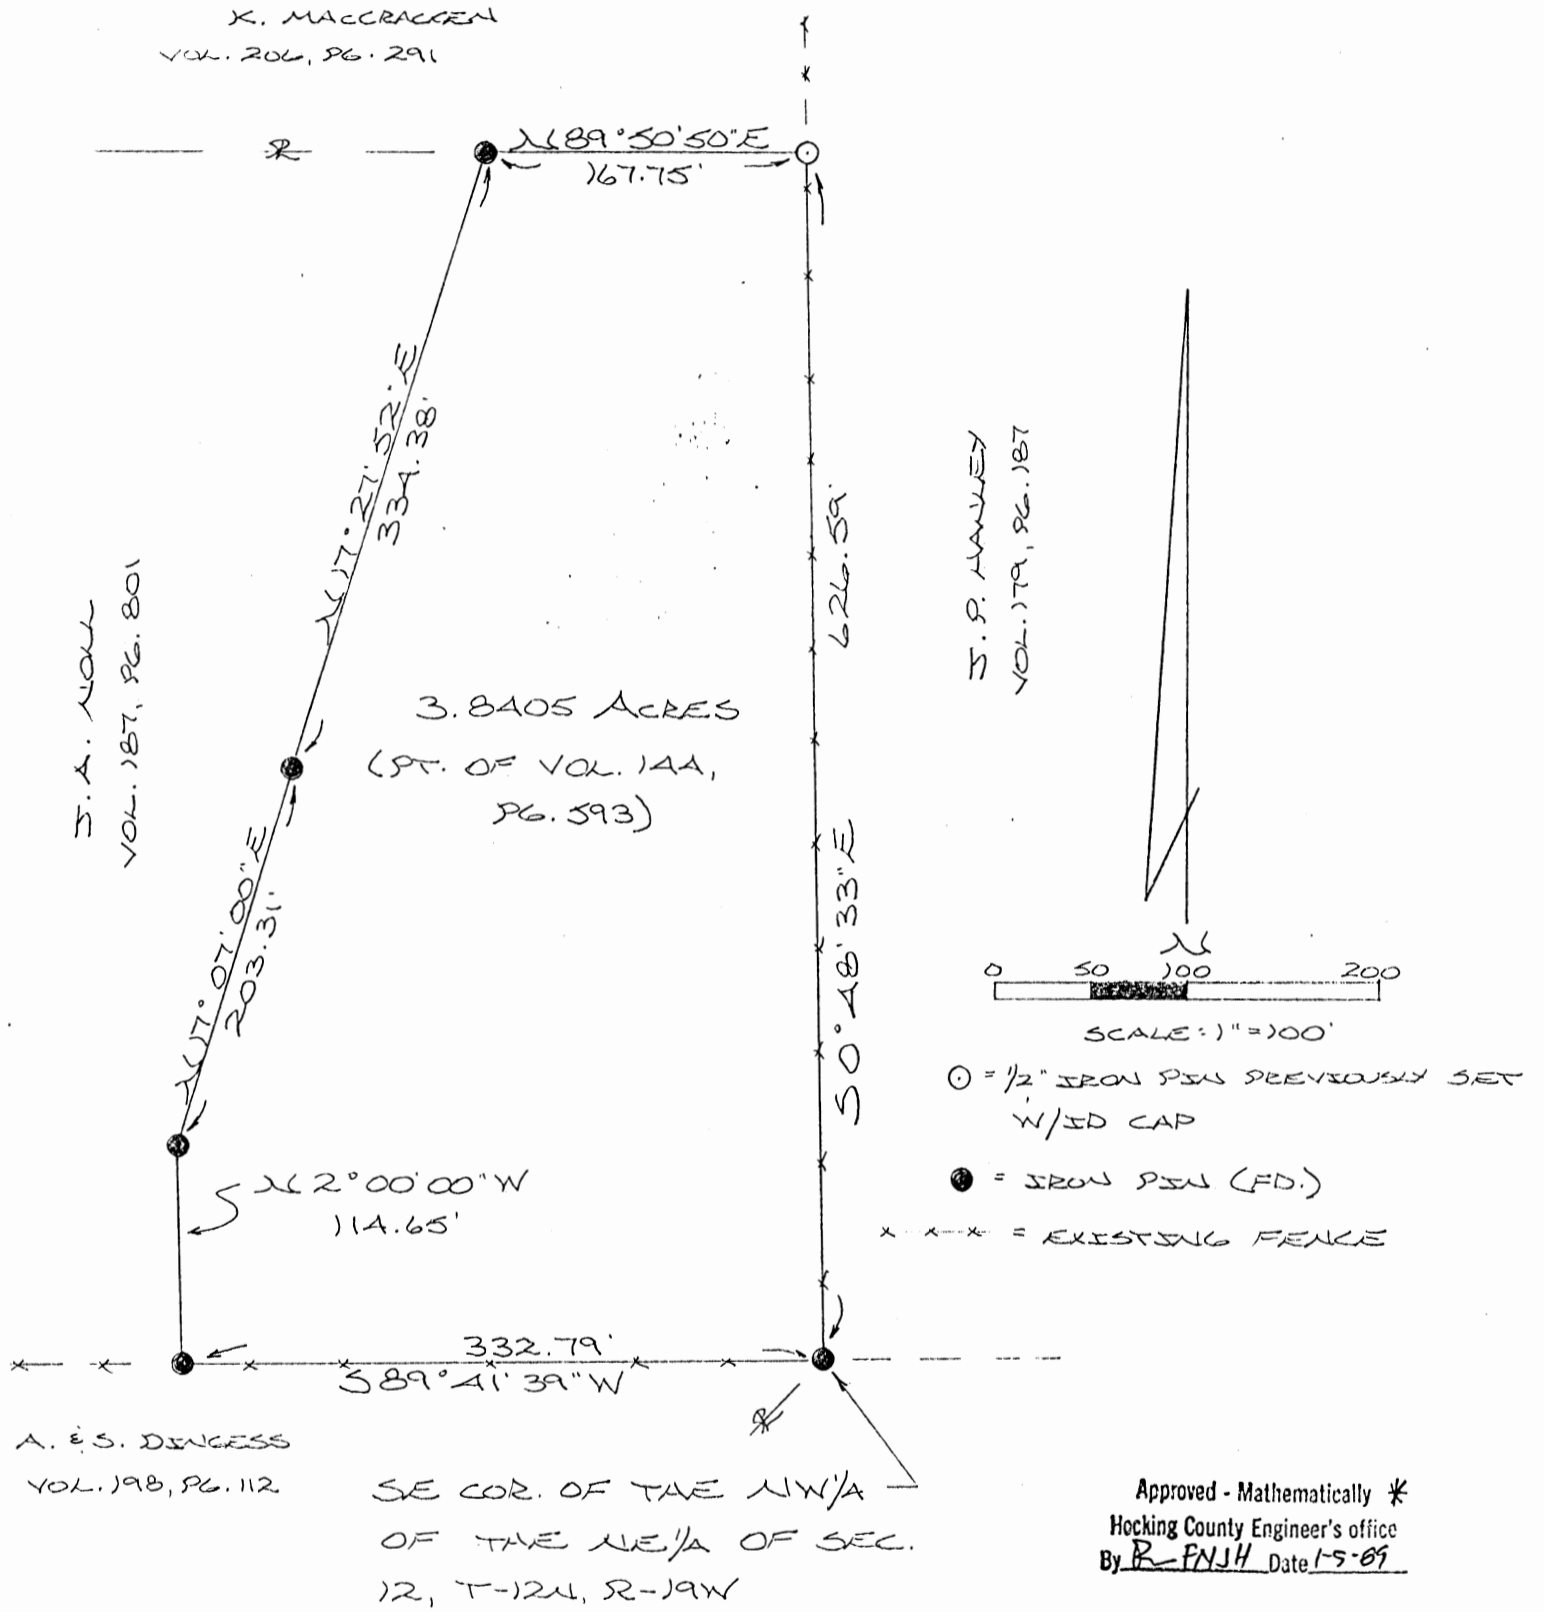 K. MACCRACKEN
VOL. 206, PG. 291
N 89°50'50"E
167.75'
N 17°27'52"E
334.38'
626.59'
S 0°48'33"E
J. P. HANLEY
VOL. 179, PG. 187
J. A. NOLL
VOL. 187, PG. 801
3.8405 ACRES
(PT. OF VOL. 144,
PG. 593)
N 17°07'00"E
203.31'
N
0 50 100 200
SCALE: 1"=100'
= 1/2" IRON PIN PREVIOUSLY SET
W/ID CAP
= IRON PIN (FD.)
x x x = EXISTING FENCE
N 2°00'00"W
114.65'
332.79'
S 89°41'39"W
A. & S. DINGESS
VOL. 198, PG. 112
SE COR. OF THE NW1/4
OF THE NE1/4 OF SEC.
12, T-12N, R-19W
Approved - Mathematically
Hocking County Engineer's office
By Date 1-5-89